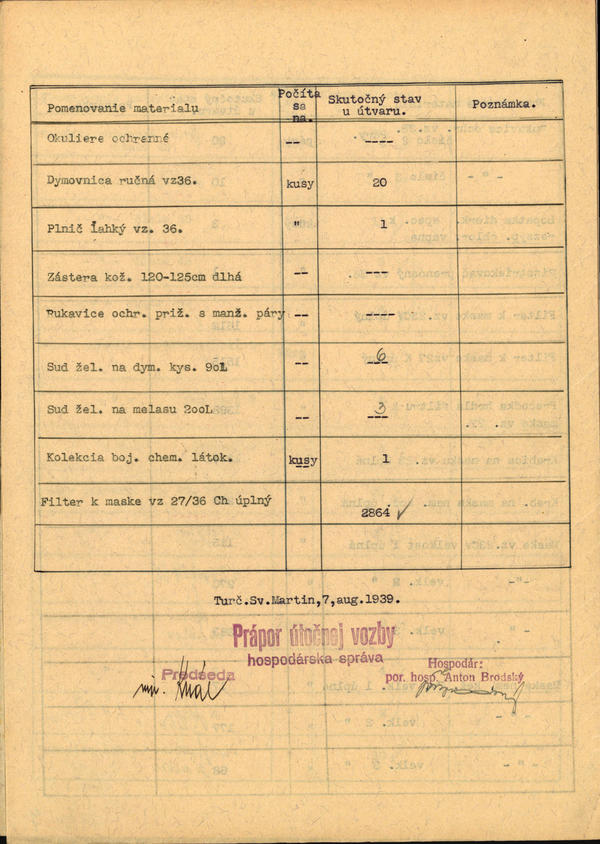 Pomenovanie materialu Počíta sa na. Skutočný stav u útvaru. Poznámka.
Okuliere ochranné -- ----
Dymovnica ručná vz36. kusy 20
Plnič ľahký vz. 36. " 1
Zástera kož. 120-125cm dlhá -- ---
Rukavice ochr. priž. s manž. páry -- ----
Sud žel. na dym. kys. 90L -- 6
Sud žel. na melasu 200L -- 3
Kolekcia boj. chem. látok. kusy 1
Filter k maske vz 27/36 Ch úplný 2864 ✓
Turč.Sv.Martin,7,aug.1939.
Prápor útočnej vozby
hospodárska správa
Predseda
Hospodár:
por. hosp. Anton Brodský